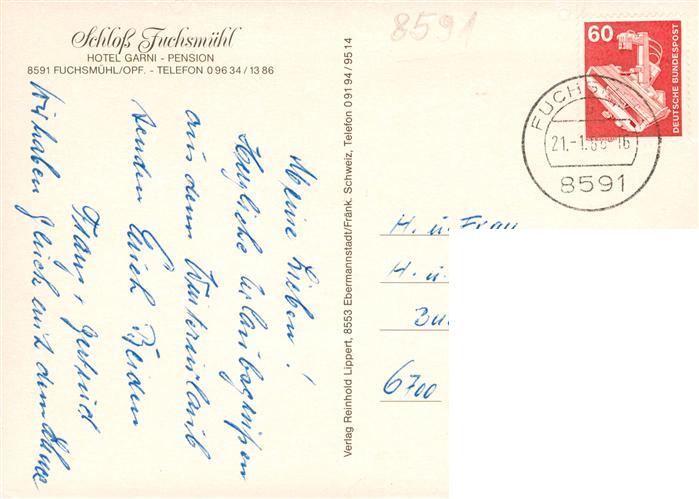 Schloß Fuchsmühl
HOTEL GARNI - PENSION
8591 FUCHSMÜHL/OPF. - TELEFON 0 96 34 / 13 86
8591
60
DEUTSCHE BUNDESPOST
FUCHSM
21.-1.88-16
8591
Meine Lieben!
Herzliche Urlaubsgrüße
aus dem Winterurlaub
senden Euch Beiden
Franz, Gertrud
Wir haben Glück mit dem
Verlag Reinhold Lippert, 8553 Ebermannstadt/Fränk. Schweiz, Telefon 0 91 94 / 95 14
H. u. Frau
H. u.
6700